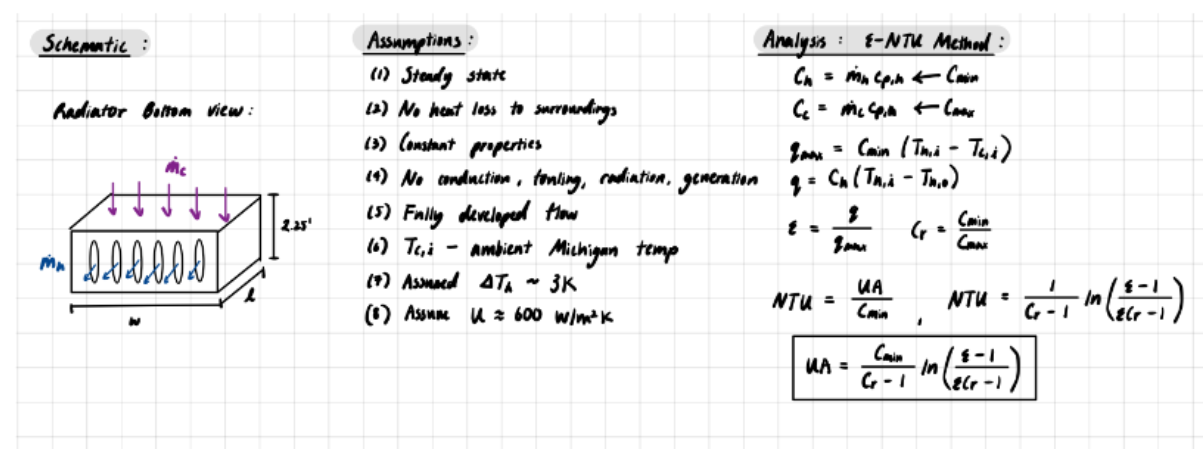 Schematic :
Radiator Bottom view :
ṁc
2.25"
ṁh
l
w
Assumptions :
(1) Steady state
(2) No heat loss to surroundings
(3) Constant properties
(4) No conduction, fouling, radiation, generation
(5) Fully developed flow
(6) Tc,i - ambient Michigan temp
(7) Assumed ΔTh ~ 3K
(8) Assume U ≈ 600 W/m²K
Analysis : ε-NTU Method :
Ch = ṁh cp,h ← Cmin
Cc = ṁc cp,h ← Cmax
qmax = Cmin (Th,i - Tc,i)
q = Ch (Th,i - Th,o)
ε = q/qmax Cr = Cmin/Cmax
NTU = UA/Cmin , NTU = 1/(Cr - 1) ln((ε - 1)/(εCr - 1))
UA = Cmin/(Cr - 1) ln((ε - 1)/(εCr - 1))